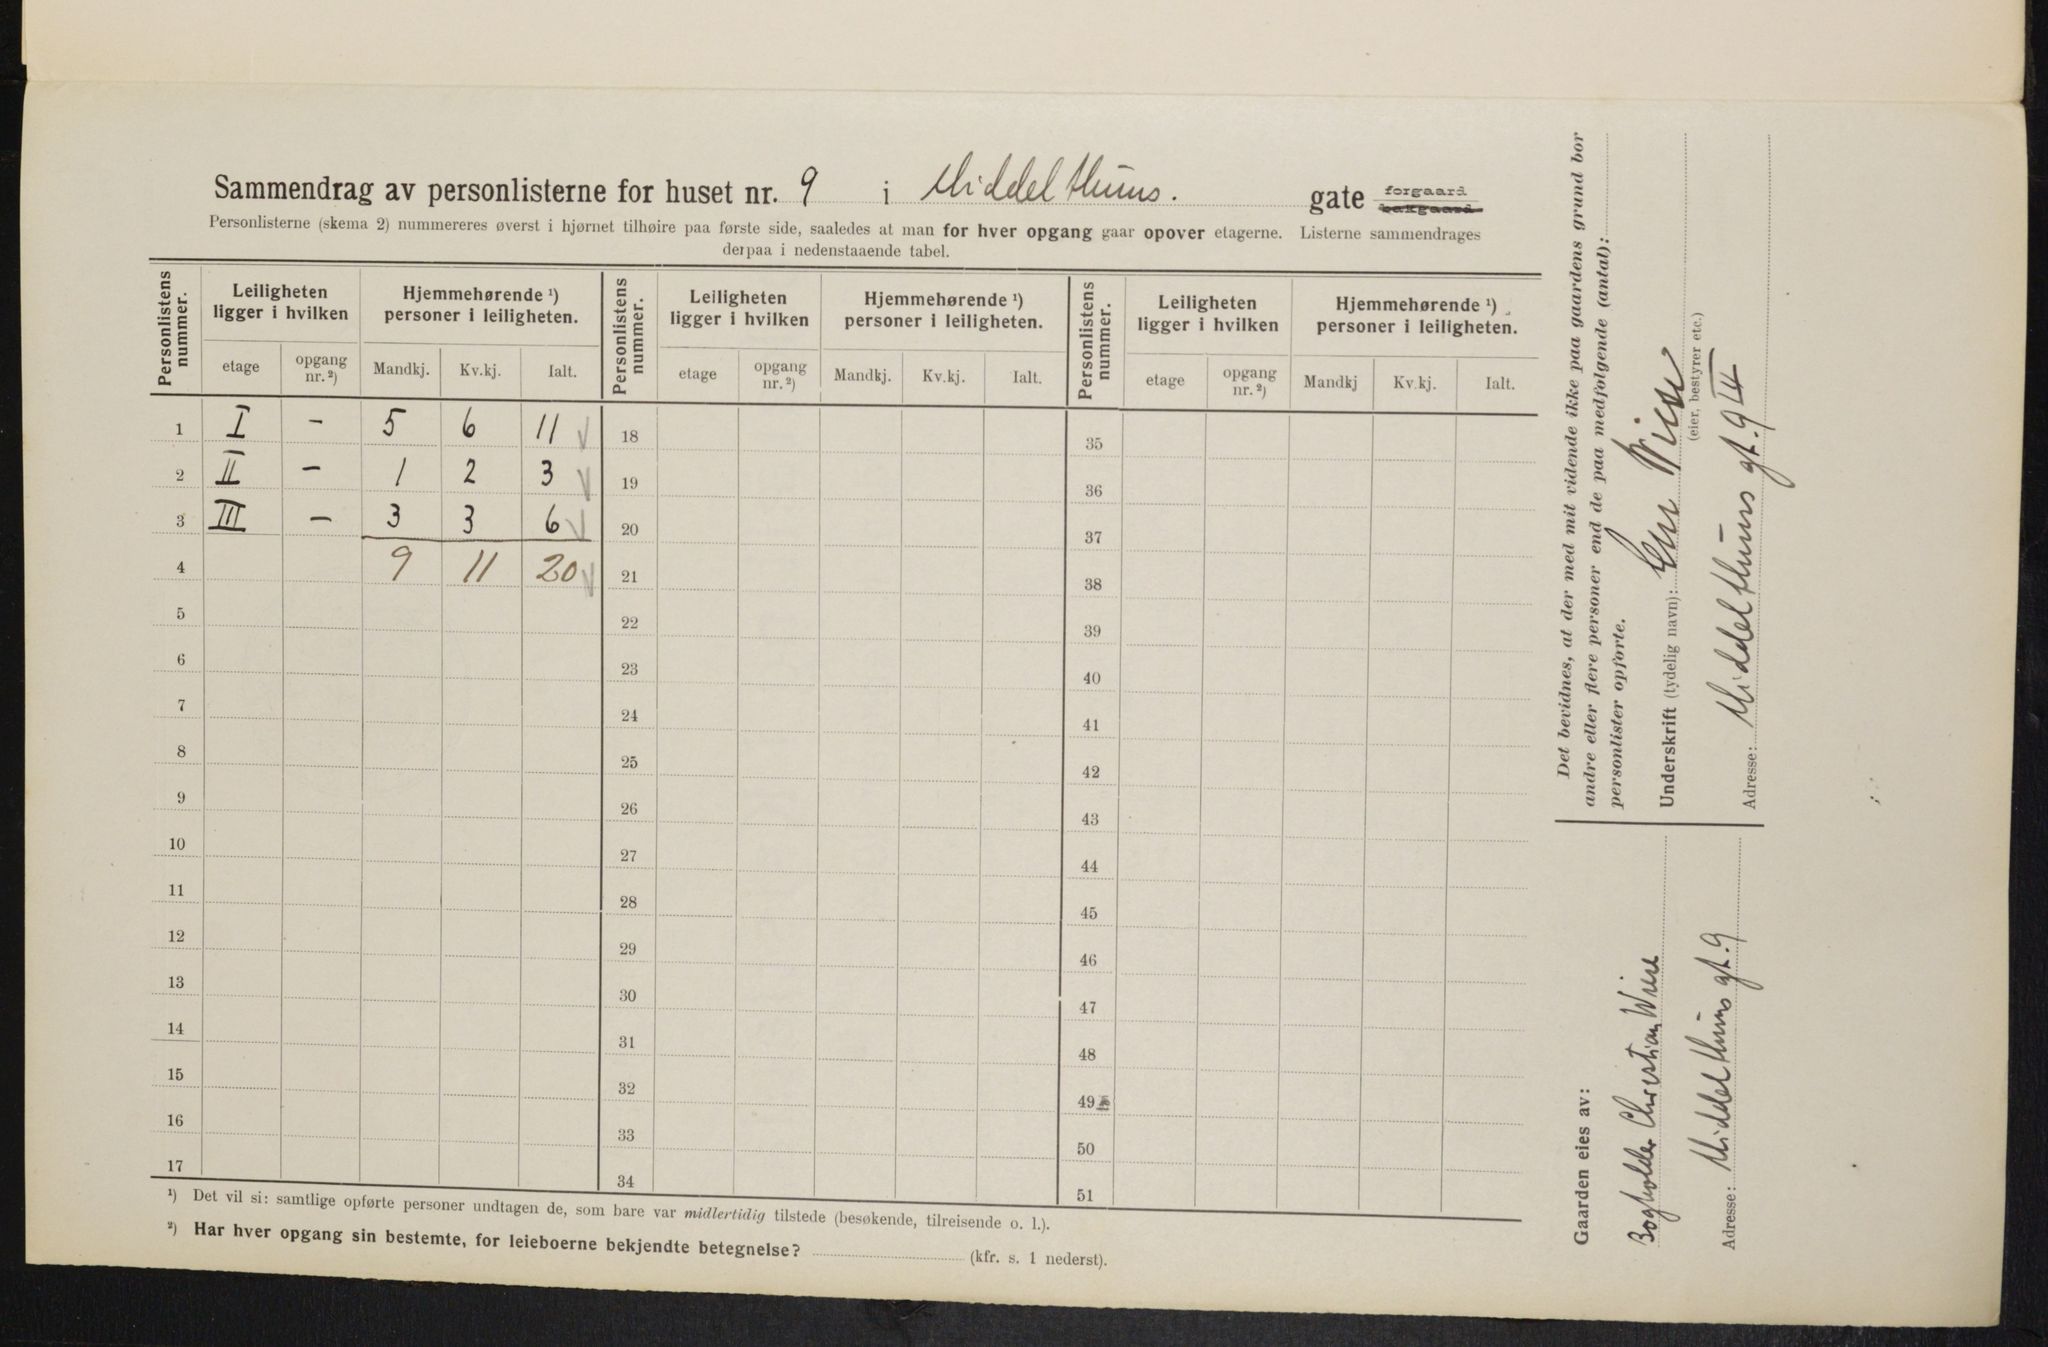 Sammendrag av personlisterne for huset nr. 9 i Middelthuns. gate forgaard
bakgaard
Personlisterne (skema 2) nummereres øverst i hjørnet tilhøire paa første side, saaledes at man for hver opgang gaar opover etagerne. Listerne sammendrages
derpaa i nedenstaaende tabel.
Personlistens nummer. Leiligheten ligger i hvilken Hjemmehørende ¹) personer i leiligheten. Personlistens nummer. Leiligheten ligger i hvilken Hjemmehørende ¹) personer i leiligheten. Personlistens nummer. Leiligheten ligger i hvilken Hjemmehørende ¹) personer i leiligheten.
etage opgang nr. ²) Mandkj. Kv.kj. Ialt. etage opgang nr. ²) Mandkj. Kv.kj. Ialt. etage opgang nr. ²) Mandkj Kv.kj. Ialt.
1 I – 5 6 11 18 35
2 II – 1 2 3 19 36
3 III – 3 3 6 20 37
4 9 11 20 21 38
5 22 39
6 23 40
7 24 41
8 25 42
9 26 43
10 27 44
11 28 45
12 29 46
13 30 47
14 31 48
15 32 49
16 33 50
17 34 51
¹) Det vil si: samtlige opførte personer undtagen de, som bare var midlertidig tilstede (besøkende, tilreisende o. l.).
²) Har hver opgang sin bestemte, for leieboerne bekjendte betegnelse? (kfr. s. 1 nederst).
Det bevidnes, at der med mit vidende ikke paa gaardens grund bor
andre eller flere personer end de paa medfølgende (antal):
personlister opførte.
Underskrift (tydelig navn):
(eier, bestyrer etc.)
Adresse: Middelthuns gt. 9 III
Gaarden eies av:
Bogholder Christian Wiese
Adresse: Middelthuns gt. 9